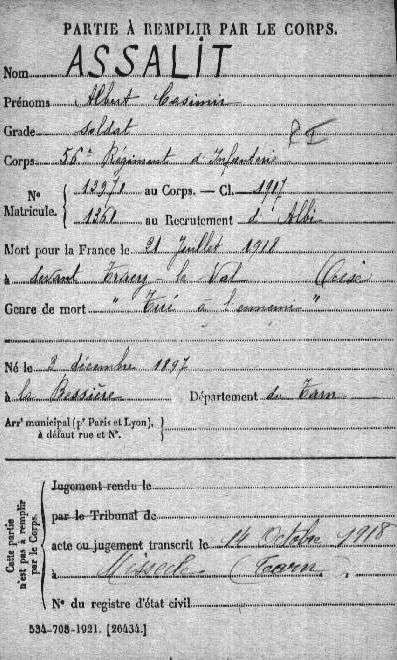 PARTIE À REMPLIR PAR LE CORPS.
Nom ASSALIT
Prénoms Albert Casimir
Grade soldat
Corps 56e Régiment d'Infanterie
Nº Matricule. 12970 au Corps. — Cl. 1917
1350 au Recrutement d'Albi
Mort pour la France le 21 Juillet 1918
à devant Tracy-le-Val (Oise)
Genre de mort "Tué à l'ennemi"
Né le 2 décembre 1897
à la Bessière Département du Tarn
Arrt municipal (pr Paris et Lyon),
à défaut rue et Nº.
Cette partie n'est pas à remplir par le Corps.
Jugement rendu le
par le Tribunal de
acte ou jugement transcrit le 14 Octobre 1918
à Missècle (Tarn)
Nº du registre d'état civil
534-708-1921. [26434.]